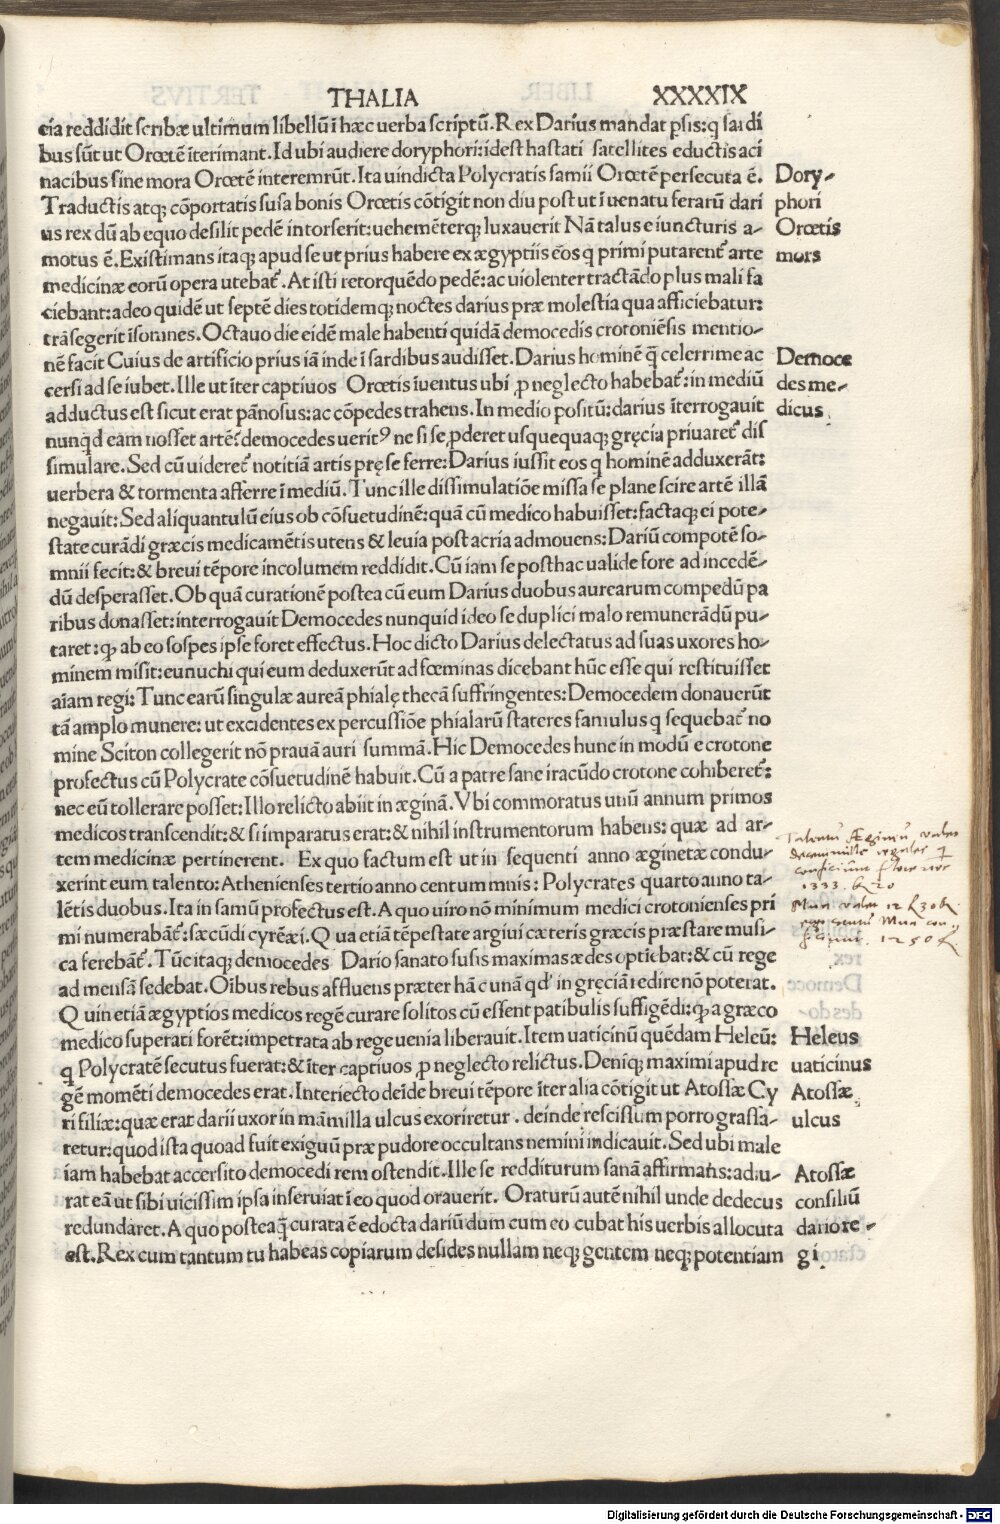 THALIA XXXXIX
cia reddidit scribæ ultimum libellũ ĩ hæc uerba scriptũ. Rex Darius mandat psis: q sardi
bus sũt ut Orœtẽ ĩterimant. Id ubi audiere doryphori: idest hastati satellites eductis aci
nacibus sine mora Orœtẽ interemrũt. Ita uindicta Polycratis samii Orœtẽ persecuta ẽ.
Traductis atq; cõportatis susa bonis Orœtis cõtigit non diu post ut ĩ uenatu ferarũ dari
us rex dũ ab equo desilit pedẽ intorserit: uehemẽterq; luxauerit Nã talus e iuncturis a-
motus ẽ. Existimans itaq; apud se ut prius habere ex ægyptiis eos q primi putarent᷑ arte
medicinæ eorũ opera utebat᷑. At isti retorquẽdo pedẽ: ac uiolenter tractãdo plus mali fa
ciebant: adeo quidẽ ut septẽ dies totidemq; noctes darius præ molestia qua afficiebatur:
trãsegerit ĩsomnes. Octauo die eidẽ male habenti quidã democedis crotoniẽsis mentio-
nẽ facit Cuius de artificio prius iã inde ĩ sardibus audisset. Darius hominẽ q̃ celerrime ac
cersi ad se iubet. Ille ut ĩter captiuos Orœtis ĩuentus ubi ꝓ neglecto habebat᷑: in mediũ
adductus est sicut erat pãnosus: ac cõpedes trahens. In medio positũ: darius ĩterrogauit
nunqd eam nosset artẽ? democedes uerit⁹ ne si se ꝓderet usquequaq; gręcia priuaret᷑ dis
simulare. Sed cũ uideret᷑ notitiã artis pręse ferre: Darius iussit eos q hominẽ adduxerãt:
uerbera & tormenta afferre ĩ mediũ. Tunc ille dissimulatiõe missa se plane scire artẽ illã
negauit: Sed aliquantulũ eius ob cõsuetudinẽ: quã cũ medico habuisset: factaq; ei pote-
state curãdi græcis medicamẽtis utens & leuia post acria admouens: Dariũ compotẽ so-
mnii fecit: & breui tẽpore incolumem reddidit. Cũ iam se posthac ualide fore ad incedẽ-
dũ desperasset. Ob quã curationẽ postea cũ eum Darius duobus aurearum compedũ pa
ribus donasset: interrogauit Democedes nunquid ideo se duplici malo remunerãdũ pu-
taret: q; ab eo sospes ipse foret effectus. Hoc dicto Darius delectatus ad suas uxores ho-
minem misit: eunuchi qui eum deduxerũt ad fœminas dicebant hũc esse qui restituisset
aĩam regi: Tunc earũ singulæ aureã phialę thecã suffringentes: Democedem donauerũt
tã amplo munere: ut excidentes ex percussiõe phialarũ stateres famulus q sequebat᷑ no
mine Sciton collegerit nõ prauã auri summã. Hic Democedes hunc in modũ e crotone
profectus cũ Polycrate cõsuetudinẽ habuit. Cũ a patre sane iracũdo crotone cohiberet᷑:
nec eũ tollerare posset: Illo relicto abiit in æginã. Vbi commoratus unũ annum primos
medicos transcendit: & si imparatus erat: & nihil instrumentorum habens: quæ ad ar-
tem medicinæ pertinerent. Ex quo factum est ut in sequenti anno æginetæ condu-
xerint eum talento: Athenienses tertio anno centum mnis: Polycrates quarto anno ta-
lẽtis duobus. Ita in samũ profectus est. A quo uiro nõ minimum medici crotonienses pri
mi numerabãt᷑: sæcũdi cyrẽæi. Qua etiã tẽpestate argiui cæteris græcis præstare musi-
ca ferebãt᷑. Tũc itaq; democedes Dario sanato susis maximas ædes optiebat: & cũ rege
ad mensã sedebat. Oĩbus rebus affluens præter hãc unã qd' in gręciã redire nõ poterat.
Quin etiã ægyptios medicos regẽ curare solitos cũ essent patibulis suffigẽdi: q; a græco
medico superati forẽt: impetrata ab rege uenia liberauit. Item uaticinũ quẽdam Heleũ:
q Polycratẽ secutus fuerat: & ĩter captiuos ꝓ neglecto relictus. Deniq; maximi apud re
gẽ momẽti democedes erat. Interiecto deĩde breui tẽpore ĩter alia cõtigit ut Atossæ Cy
ri filiæ: quæ erat darii uxor in mãmilla ulcus exoriretur. deinde rescissum porro grassa-
retur: quod ista quoad fuit exiguũ præ pudore occultans nemini indicauit. Sed ubi male
iam habebat accersito democedi rem ostendit. Ille se redditurum sanã affirmans: adiu-
rat eã ut sibi uicissim ipsa inseruiat ĩ eo quod orauerit. Oraturũ autẽ nihil unde dedecus
redundaret. A quo posteaq̃ curata ẽ edocta dariũ dum cum eo cubat his uerbis allocuta
est. Rex cum tantum tu habeas copiarum desides nullam neq; gentem neq; potentiam
Dory-
phori
Orœtis
mors
Democe
des me-
dicus.
Heleus
uaticinus
Atossæ
ulcus
Atossæ
consiliũ
dario re-
gi.
1333
1250
Digitalisierung gefördert durch die Deutsche Forschungsgemeinschaft - DFG